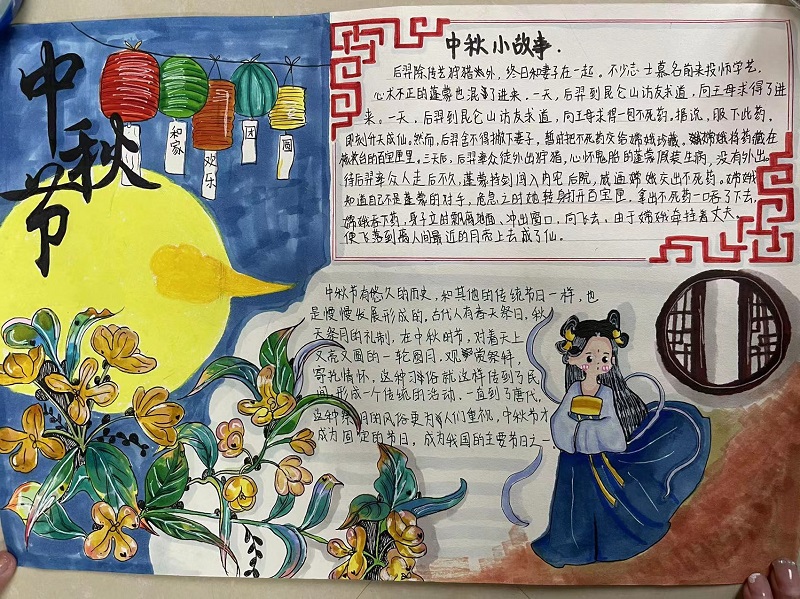 中秋节
和家
欢乐
团
圆
中秋小故事.
后羿除传艺狩猎外,终日和妻子在一起。不少志士慕名前来投师学艺,
心术不正的蓬蒙也混了进来。一天,后羿到昆仑山访友求道,向王母求得了进
来。一天,后羿到昆仑山访友求道,向王母求得一包不死药。据说,服下此药,
即刻升天成仙。然而,后羿舍不得撇下妻子,暂时把不死药交给嫦娥珍藏。嫦娥将药藏在
梳妆台的百宝匣里。三天后,后羿率众徒外出狩猎,心怀鬼胎的蓬蒙假装生病,没有外出。
待后羿率众人走后不久,蓬蒙持剑闯入内宅后院,威逼嫦娥交出不死药。嫦娥
知道自己不是蓬蒙的对手,危急之时她转身打开百宝匣,拿出不死药一吞了下去。
嫦娥吞下药,身子立时飘离地面,冲出窗口,向飞去。由于嫦娥牵挂着丈夫,
便飞落到离人间最近的月亮上去成了仙。
中秋节有悠久的历史,和其他的传统节日一样,也
是慢慢发展形成的。古代人有春天祭日,秋
天祭月的礼制,在中秋时节,对着天上
又亮又圆的一轮圆月,观赏祭拜,
寄托情怀,这种习俗就这样传到了民
间,形成一个传统的活动,一直到了唐代,
这种祭月的风俗更为人们重视,中秋节才
成为固定的节日,成为我国的主要节日之一.